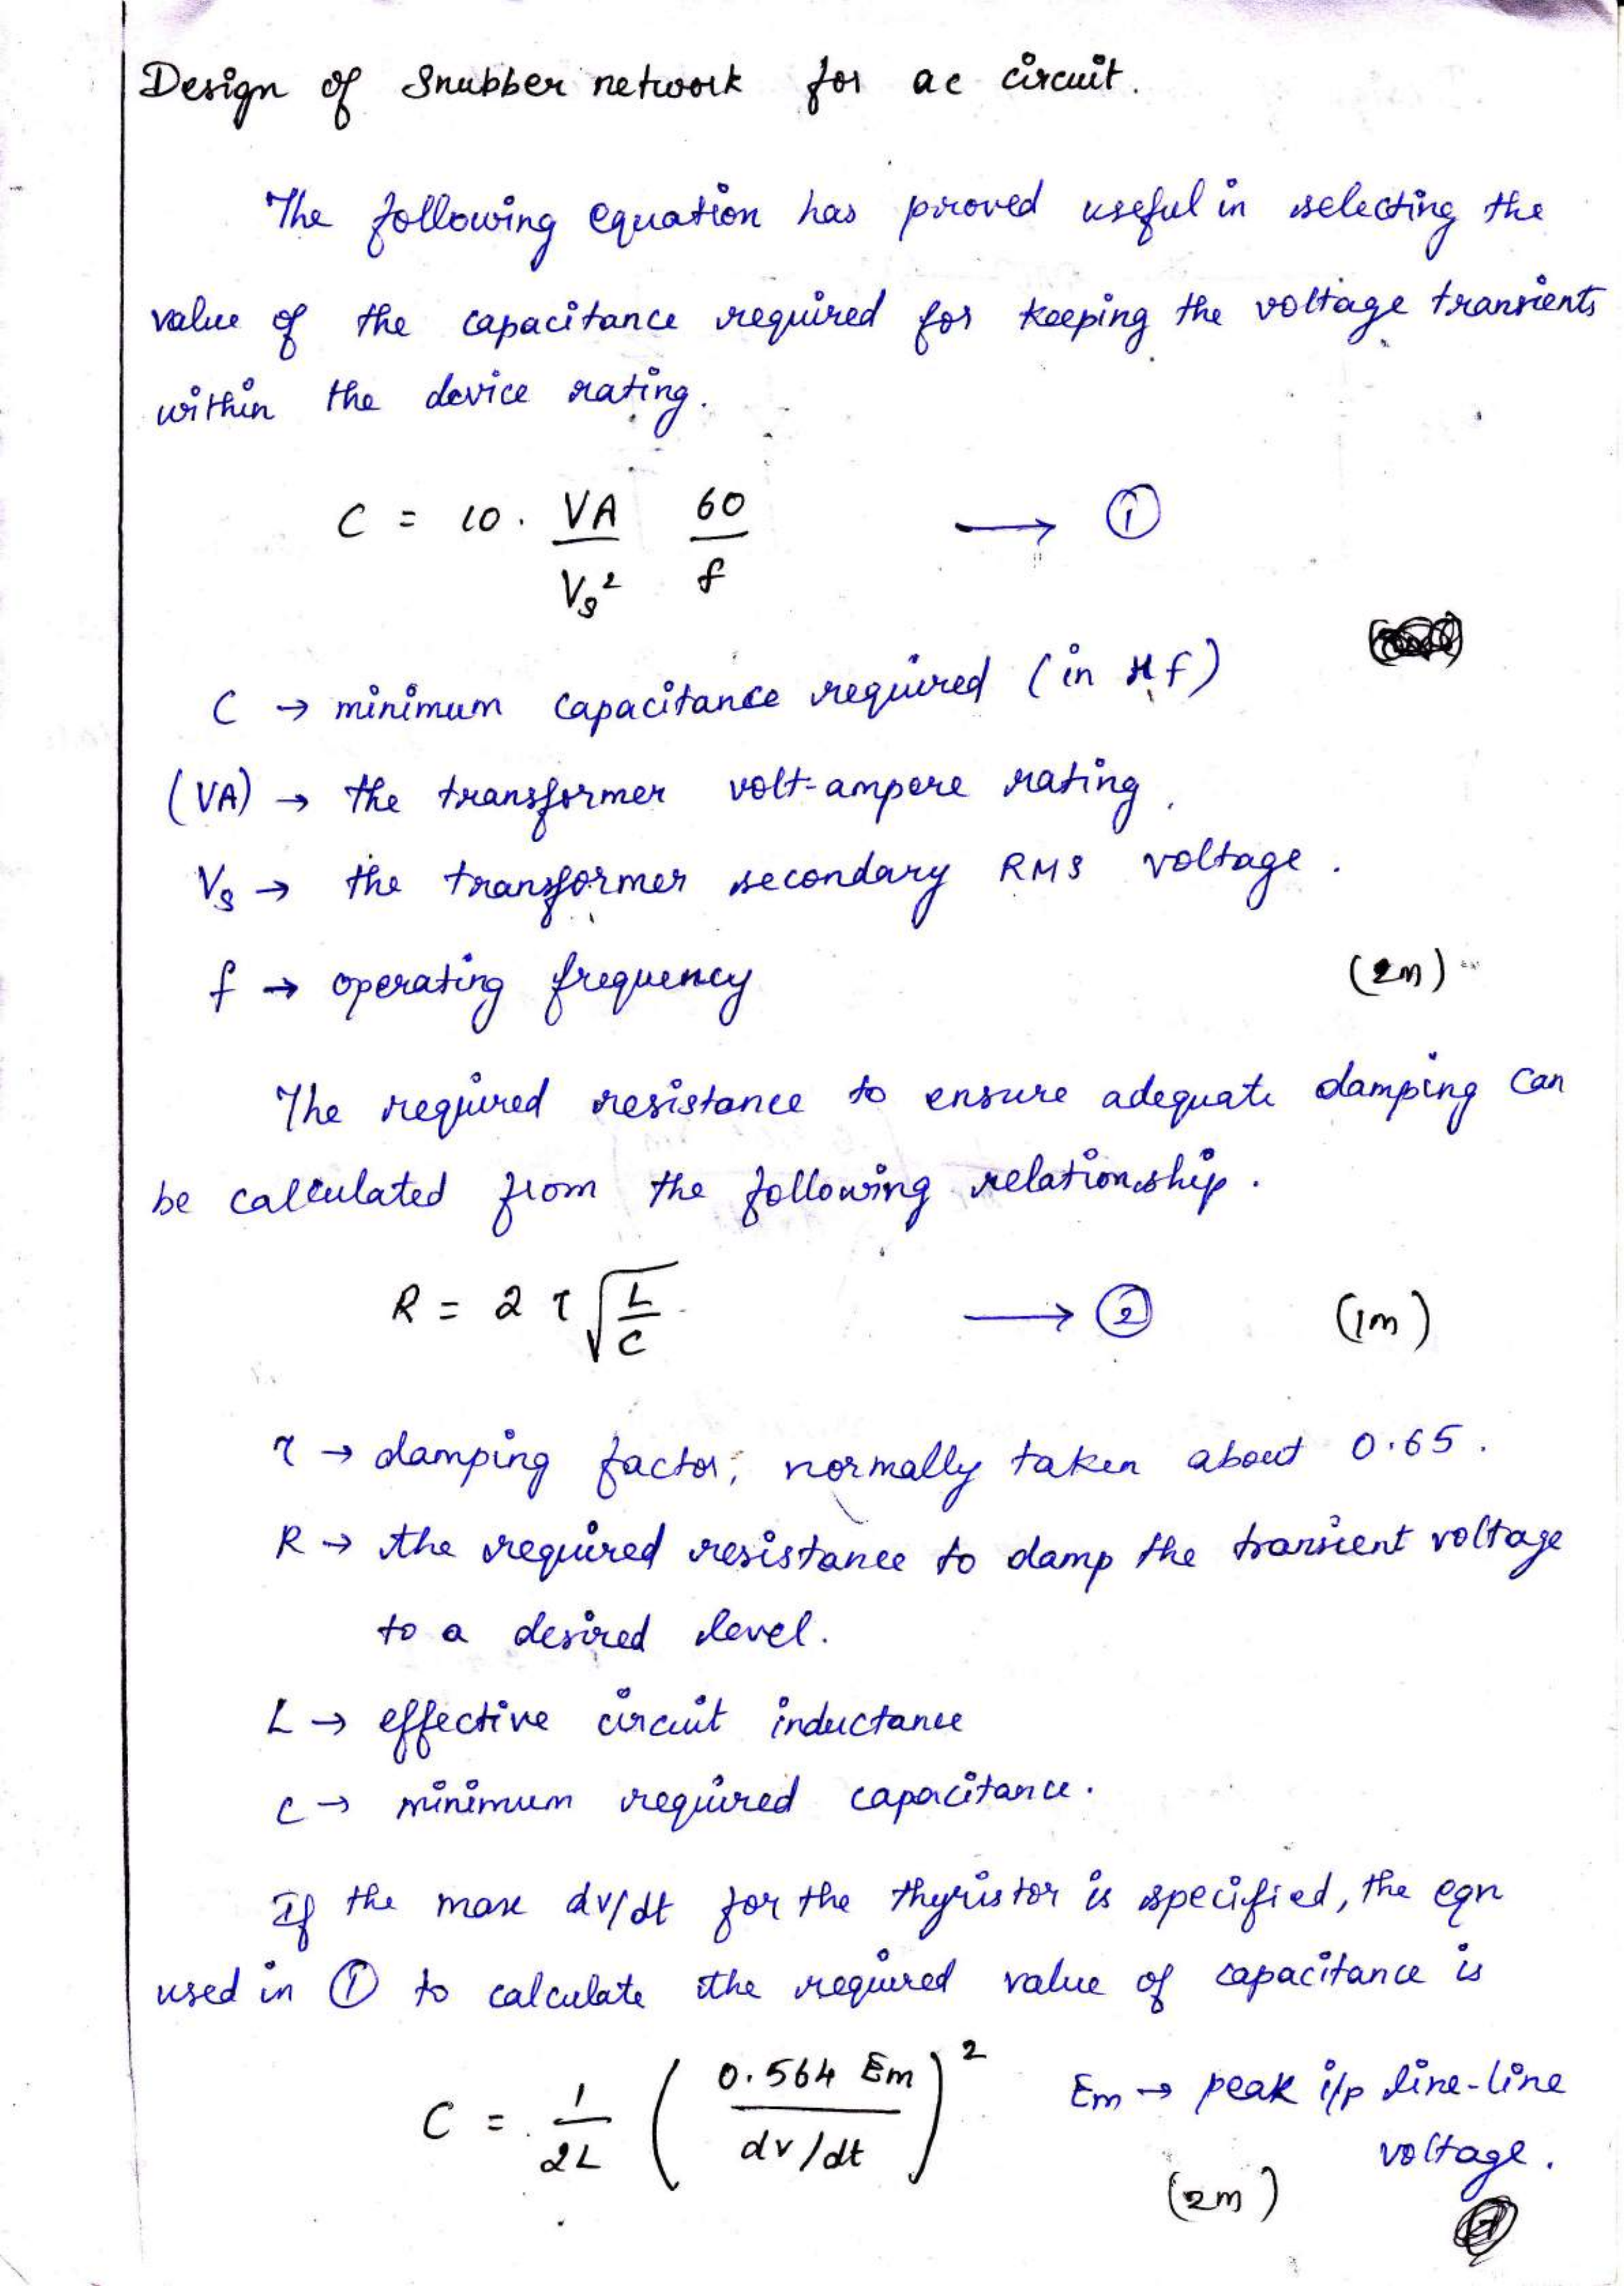 Design of Snubber network for ac circuit.
The following equation has proved useful in selecting the
value of the capacitance required for keeping the voltage transients
within the device rating.
C = 10 . VA/Vs² 60/f → ①
C → minimum capacitance required (in μf)
(VA) → the transformer volt-ampere rating.
Vs → the transformer secondary RMS voltage.
f → operating frequency (2m)
The required resistance to ensure adequate damping can
be calculated from the following relationship.
R = 2 τ √(L/C) → ② (1m)
τ → damping factor, normally taken about 0.65.
R → the required resistance to damp the transient voltage
to a desired level.
L → effective circuit inductance
C → minimum required capacitance.
If the max dv/dt for the thyristor is specified, the eqn
used in ① to calculate the required value of capacitance is
C = 1/2L (0.564 Em / dv/dt)² Em → peak i/p line-line
voltage.
(2m)